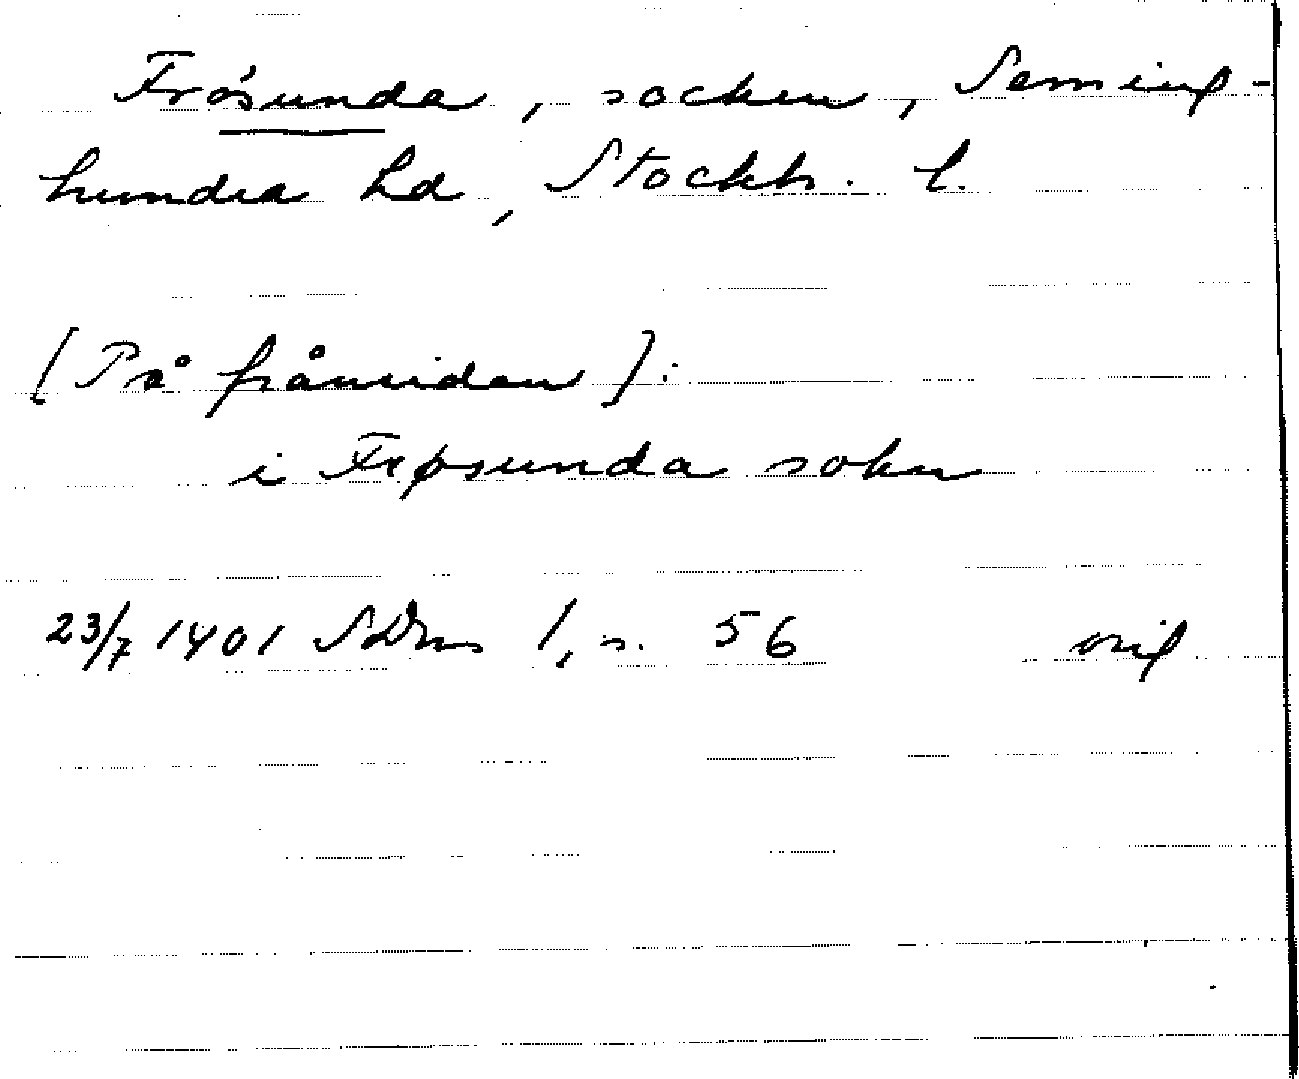 Frösunda, socken, Seming-
hundra hd, Stockh. l.
[På frånsidan]:
i Frøsunda sokn
23/7 1401 SDns 1, s. 56 orig